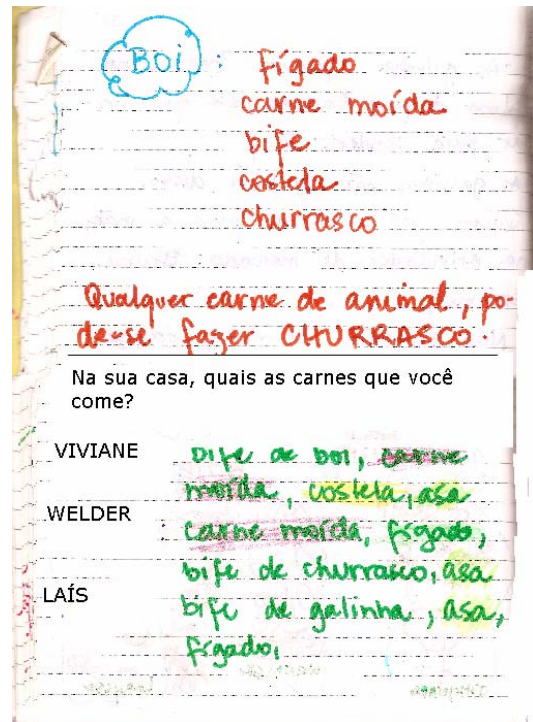 BOI : fígado
carne moída
bife
costela
churrasco
Qualquer carne de animal, po-
de-se fazer CHURRASCO.
Na sua casa, quais as carnes que você
come?
VIVIANE bife de boi, carne
moída, costela, asa
WELDER : carne moída, fígado,
bife de churrasco, asa
LAÍS bife de galinha, asa,
fígado,